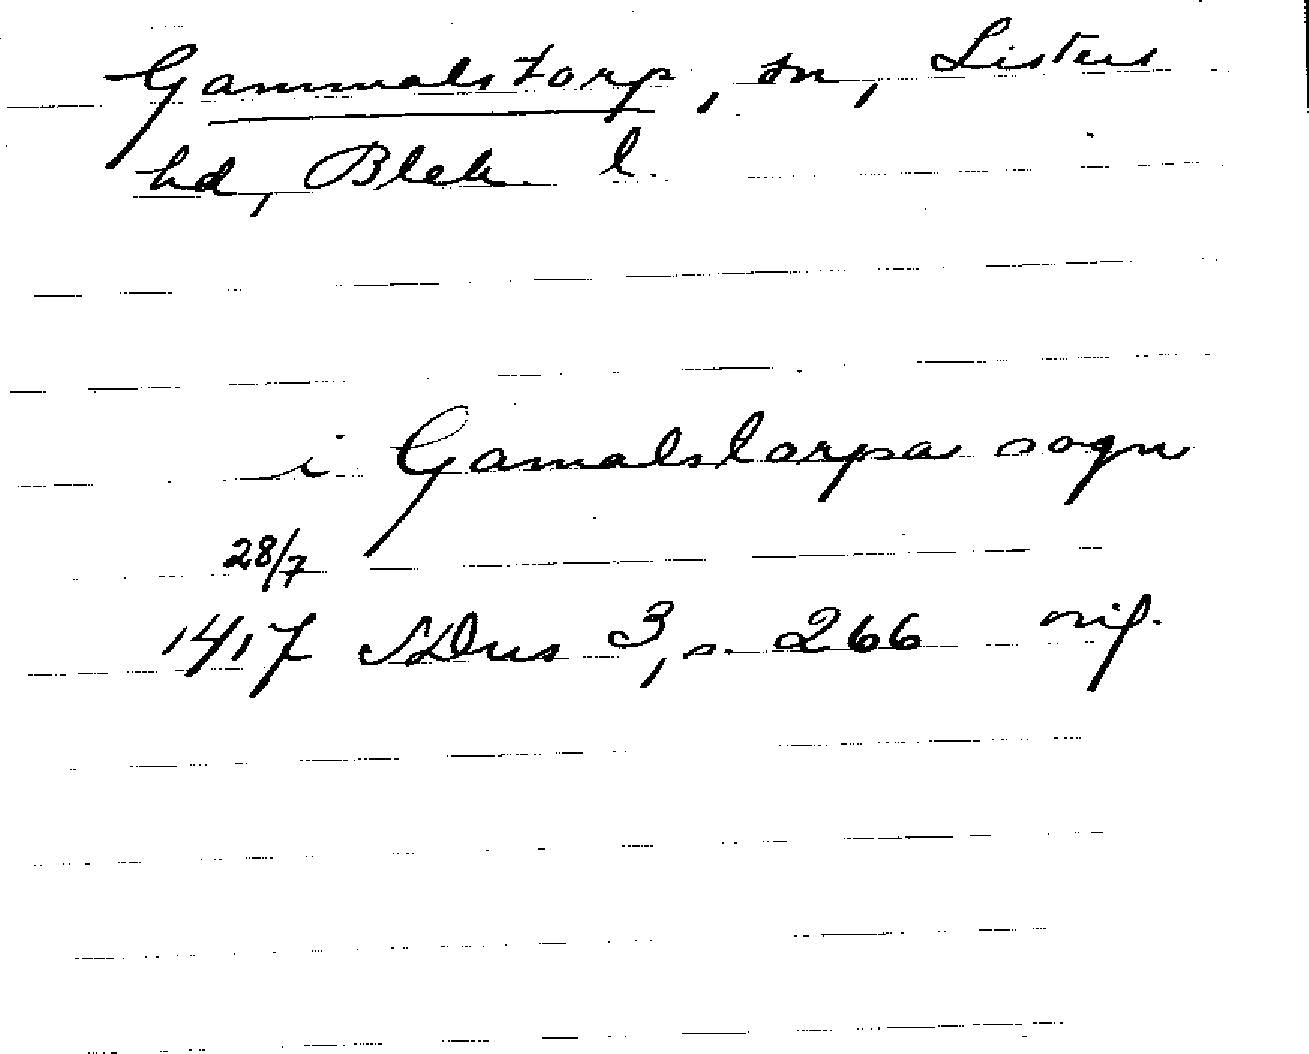 Gammalstorp, sn, Listers
hd, Blek. l.
i Gamalstorpa sogn
28/7
1417 SDns 3, s. 266 orig.